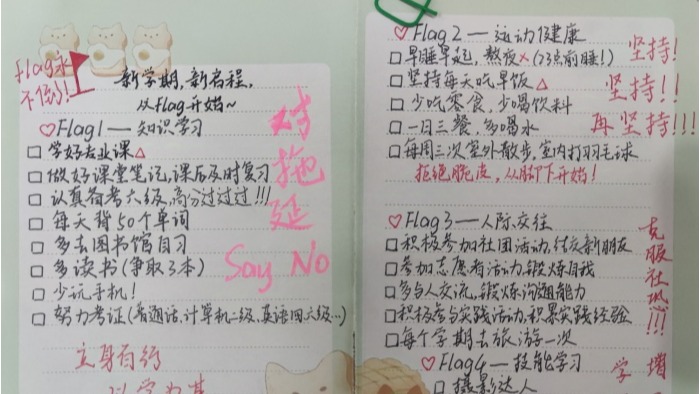 Flag永
不倒!
新学期,新启程,
从Flag开始~
♡Flag1—知识学习
□ 学好专业课△
□ 做好课堂笔记,课后及时复习
□ 认真备考六级,高分过过过!!!
□ 每天背50个单词
□ 多去图书馆自习
□ 多读书(争取3本)
□ 少玩手机!
□ 努力考证(普通话、计算机二级、英语四六级··)
对拖延
Say No
立身百行
以学为基
♡Flag2—运动健康
□早睡早起,熬夜×(23点前睡!)
□坚持每天吃早饭△
□少吃零食,少喝饮料
□一日三餐,多喝水
□每周三次室外散步,室内打羽毛球
拒绝脆皮,从脚下开始!
坚持!
坚持!!
再坚持!!!
♡Flag3—人际交往
□积极参加社团活动,结交新朋友
□参加志愿者活动,锻炼自我
□多与人交流,锻炼沟通能力
□积极参与实践活动,积累实践经验
□每个学期去旅游一次
克服社恐!!!
♡Flag4—技能学习
□摄影达人
学 增